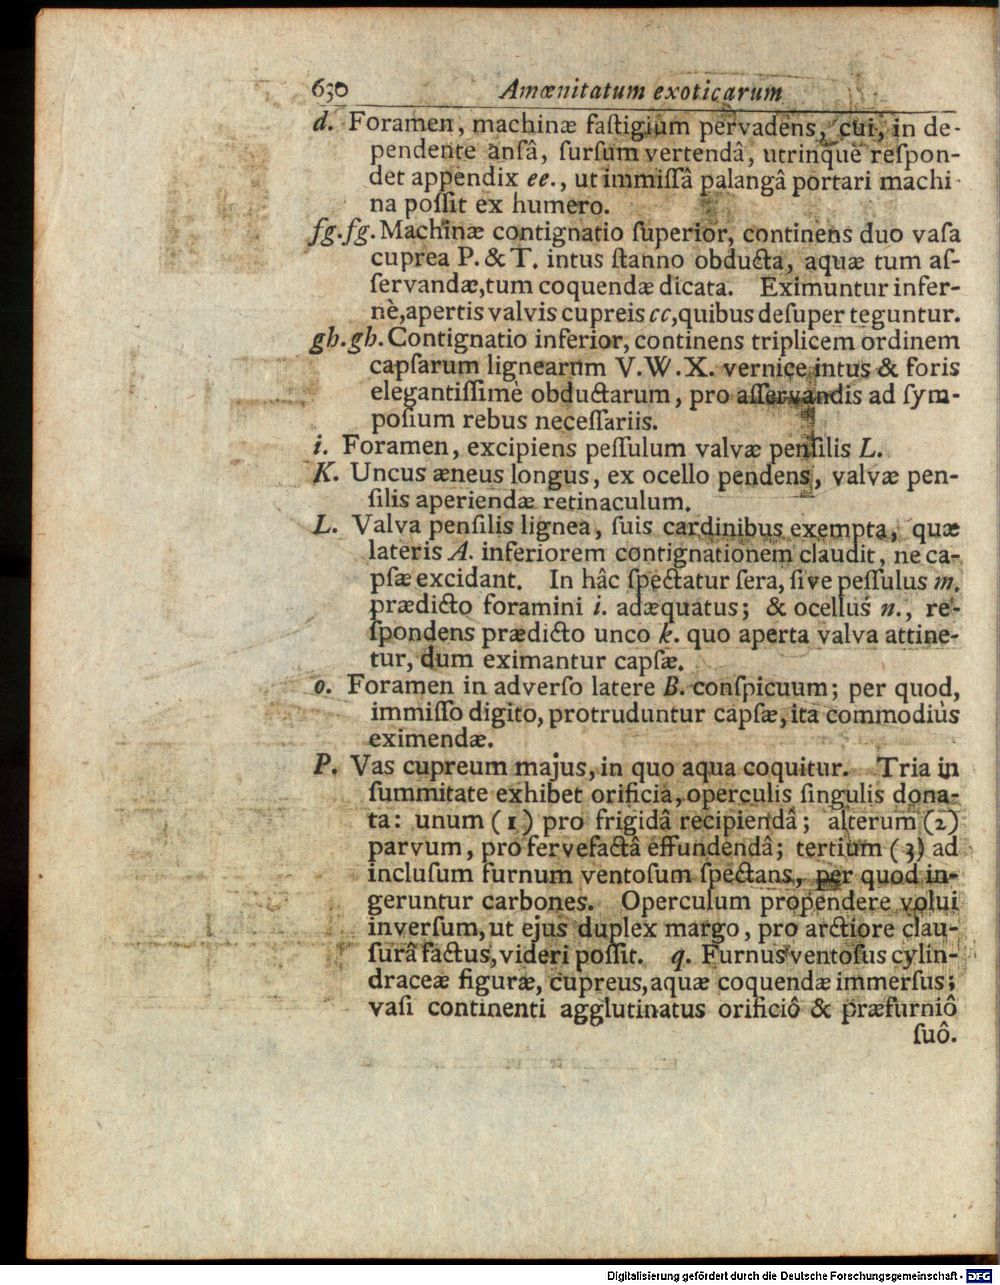 630 Amœnitatum exoticarum
d. Foramen, machinæ faſtigium pervadens, cui, in de-
pendente ansâ, ſurſum vertendâ, utrinque reſpon-
det appendix ee., ut immiſſâ palangâ portari machi-
na poſſit ex humero.
fg.fg. Machinæ contignatio ſuperior, continens duo vaſa
cuprea P. & T. intus ſtanno obducta, aquæ tum aſ-
ſervandæ, tum coquendæ dicata. Eximuntur infer-
nè, apertis valvis cupreis cc, quibus deſuper teguntur.
gh.gh. Contignatio inferior, continens triplicem ordinem
capſarum lignearum V. W. X. vernice intus & foris
elegantiſſimè obductarum, pro aſſervandis ad ſym-
poſium rebus neceſſariis.
i. Foramen, excipiens peſſulum valvæ penſilis L.
K. Uncus æneus longus, ex ocello pendens, valvæ pen-
ſilis aperiendæ retinaculum.
L. Valva penſilis lignea, ſuis cardinibus exempta, quæ
lateris A. inferiorem contignationem claudit, ne ca-
pſæ excidant. In hâc ſpectatur ſera, ſive peſſulus m.
prædicto foramini i. adæquatus; & ocellus n., re-
ſpondens prædicto unco k. quo aperta valva attine-
tur, dum eximantur capſæ.
o. Foramen in adverſo latere B. conſpicuum; per quod,
immiſſo digito, protruduntur capſæ, ita commodiùs
eximendæ.
P. Vas cupreum majus, in quo aqua coquitur. Tria in
ſummitate exhibet orificia, operculis ſingulis dona-
ta: unum (1) pro frigidâ recipiendâ; alterum (2)
parvum, pro fervefactâ effundendâ; tertium (3) ad
incluſum furnum ventoſum ſpectans, per quod in-
geruntur carbones. Operculum propendere volui
inverſum, ut ejus duplex margo, pro arctiore clau-
ſurâ factus, videri poſſit. q. Furnus ventoſus cylin-
draceæ figuræ, cupreus, aquæ coquendæ immerſus;
vaſi continenti agglutinatus orificiô & præfurniô
ſuô.
Digitalisierung gefördert durch die Deutsche Forschungsgemeinschaft - DFG